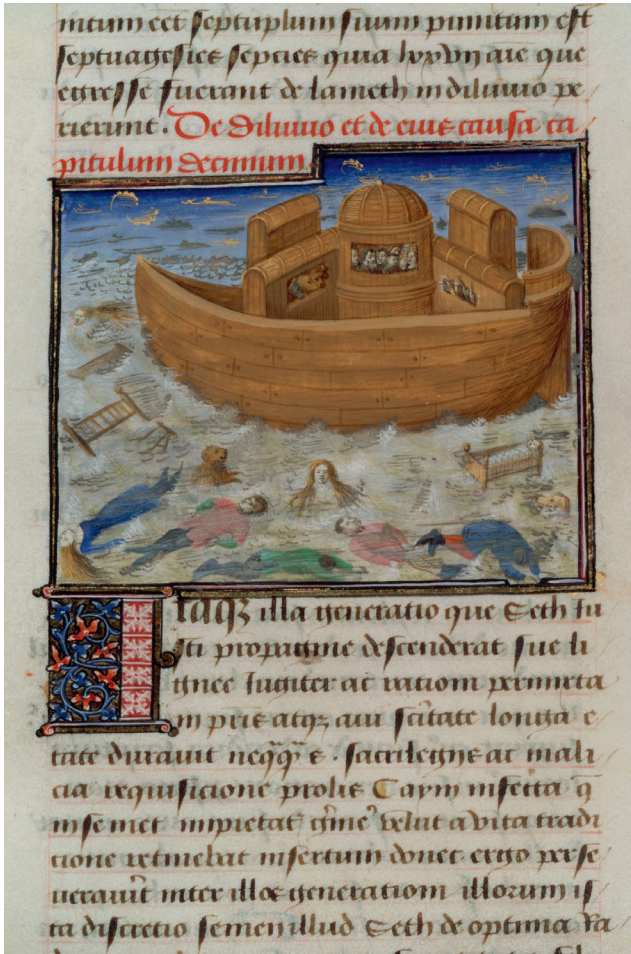 mitum eet septuplum suum punitum est
septuagesies septies quia lxxvij aīe que
egresse fuerant de lameth in diluuio pe
rierunt. De diluuio et de eius causa ca
pitulum decimum.
Itaqz illa generatio que Seth iu
sti propagine descenderat sue li
gnee iugiter ac
in atqz aui scītate longa e
tate durauit e. sacrilegijs ac mali
cia requisicione prolis Caym infecta q̄
velut a vita tradi
cione retinebat insertum donec ergo perse
uerauit inter illos generationi illorum is
ta discretio semen illud Seth de optima ra